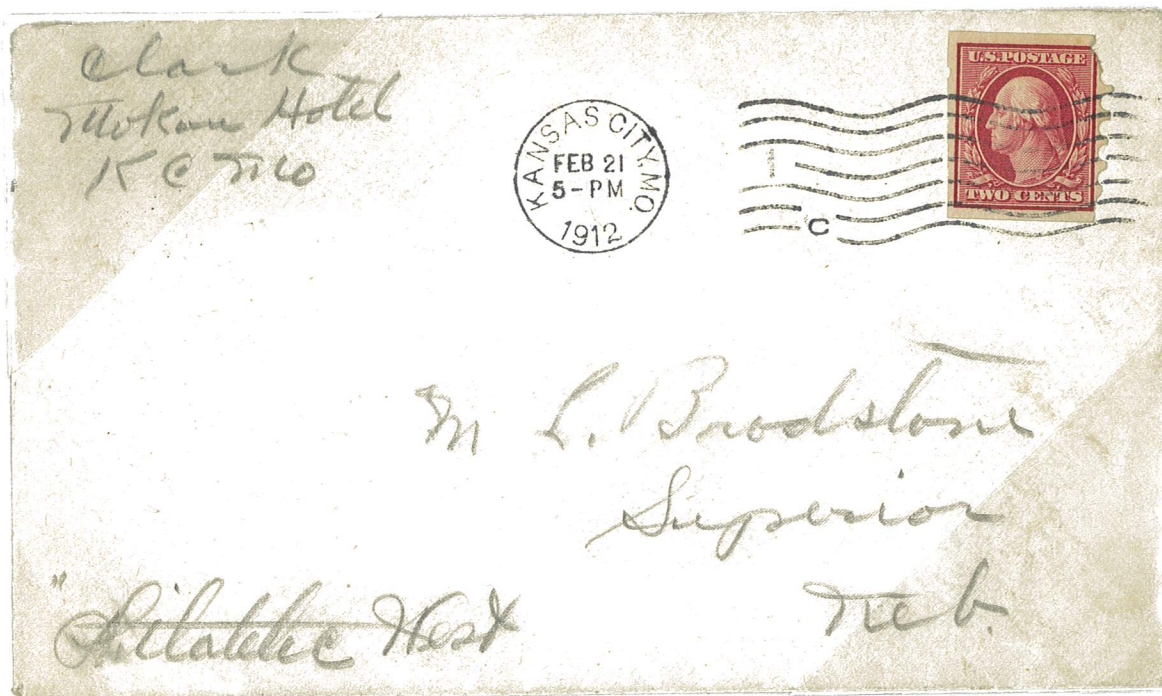 Clark
Mokan Hotel
K C Mo
KANSAS CITY, MO.
FEB 21
5-PM
1912
1
C
U.S. POSTAGE
TWO CENTS
M L. Brodstone
Superior
Neb.
"Philatelic West